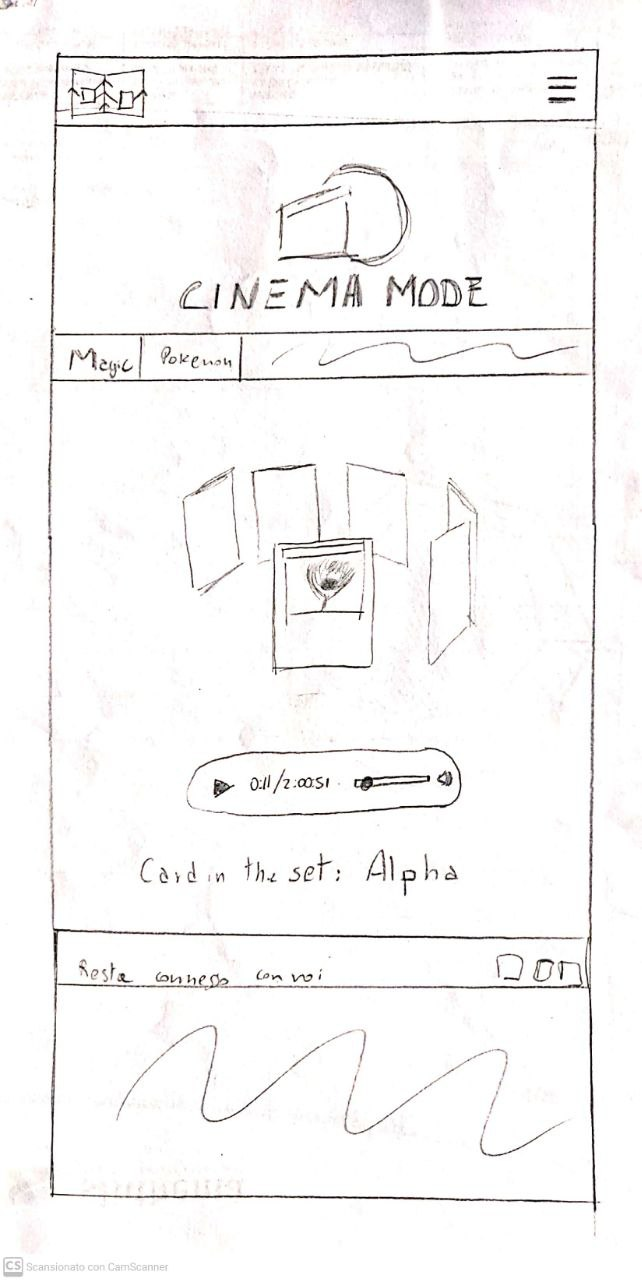 CINEMA MODE
Magic Pokemon
0:11/2:00:51
Card in the set: Alpha
Resta connesso con noi
CS Scansionato con CamScanner